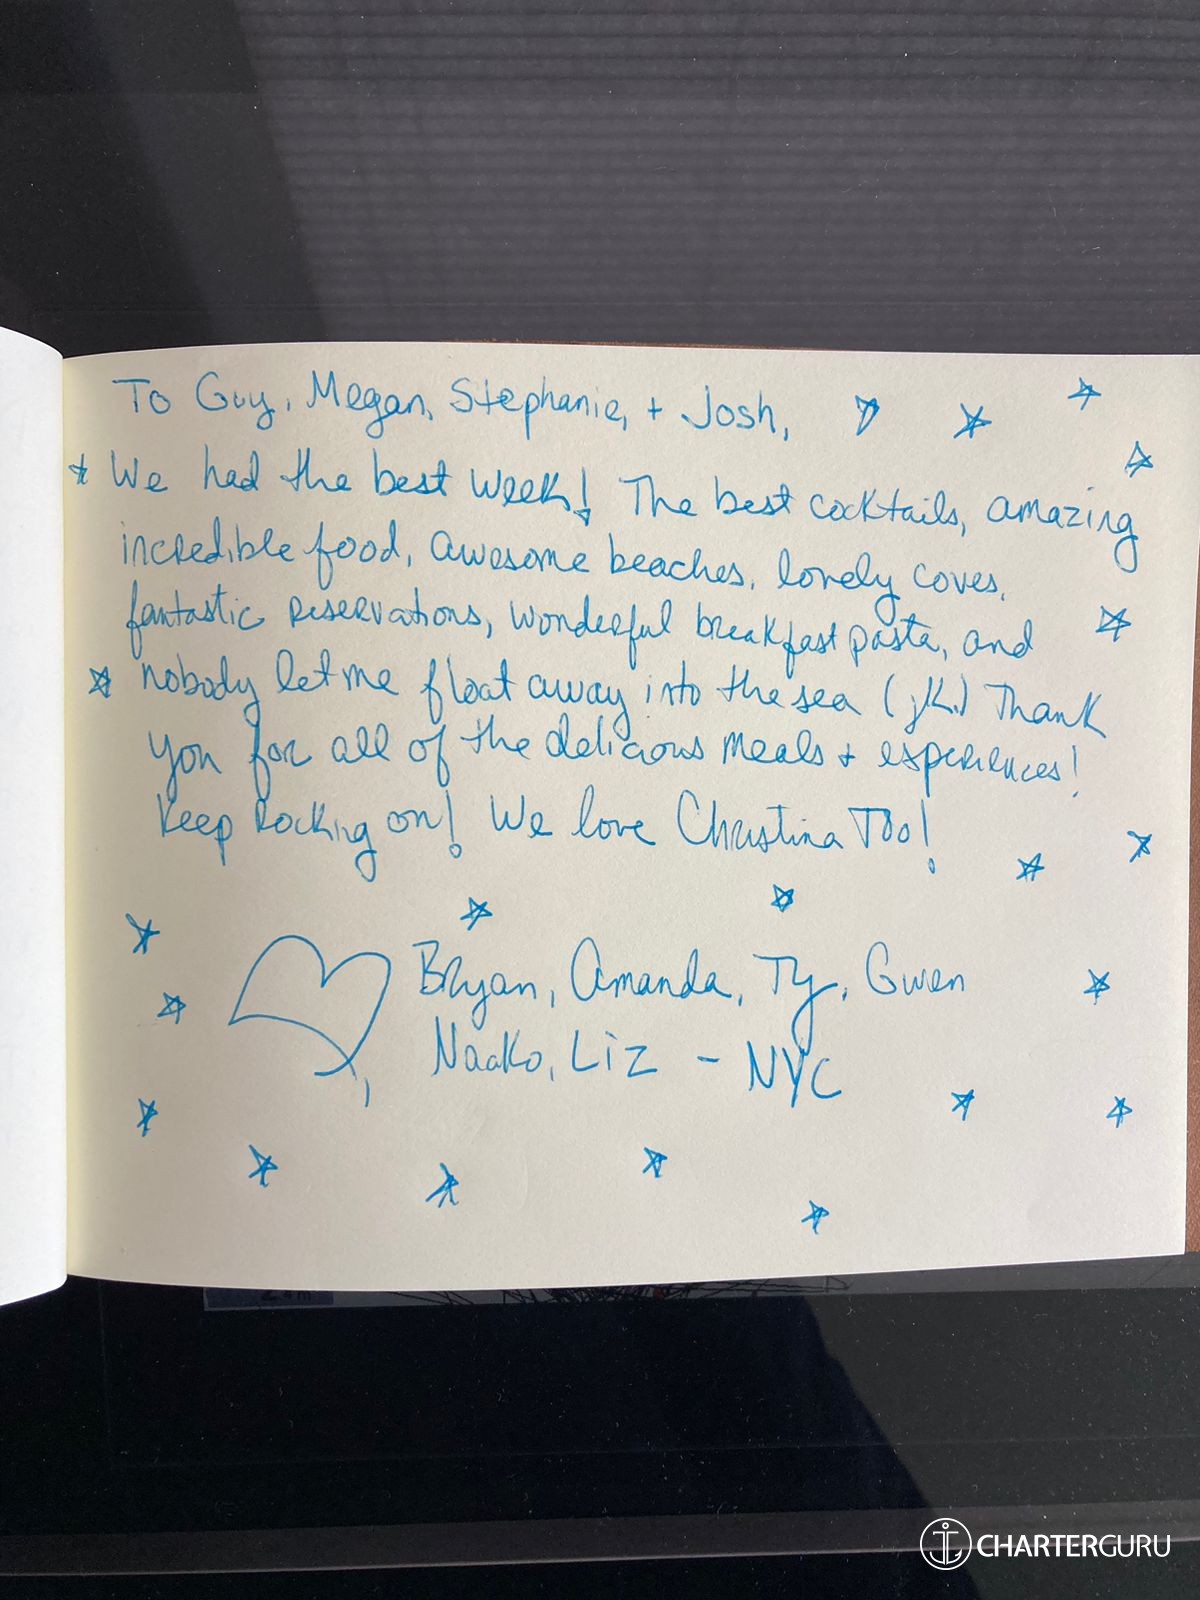 To Guy, Megan, Stephanie, + Josh,
We had the best week! The best cocktails, amazing
incredible food, awesome beaches, lovely coves,
fantastic reservations, wonderful breakfast pasta, and
nobody let me float away into the sea (jk.) Thank
you for all of the delicious meals + experiences!
Keep Rocking on! We love Christina Too!
Bryan, Amanda, Ty, Gwen
Naoko, Liz - NYC
CHARTERGURU